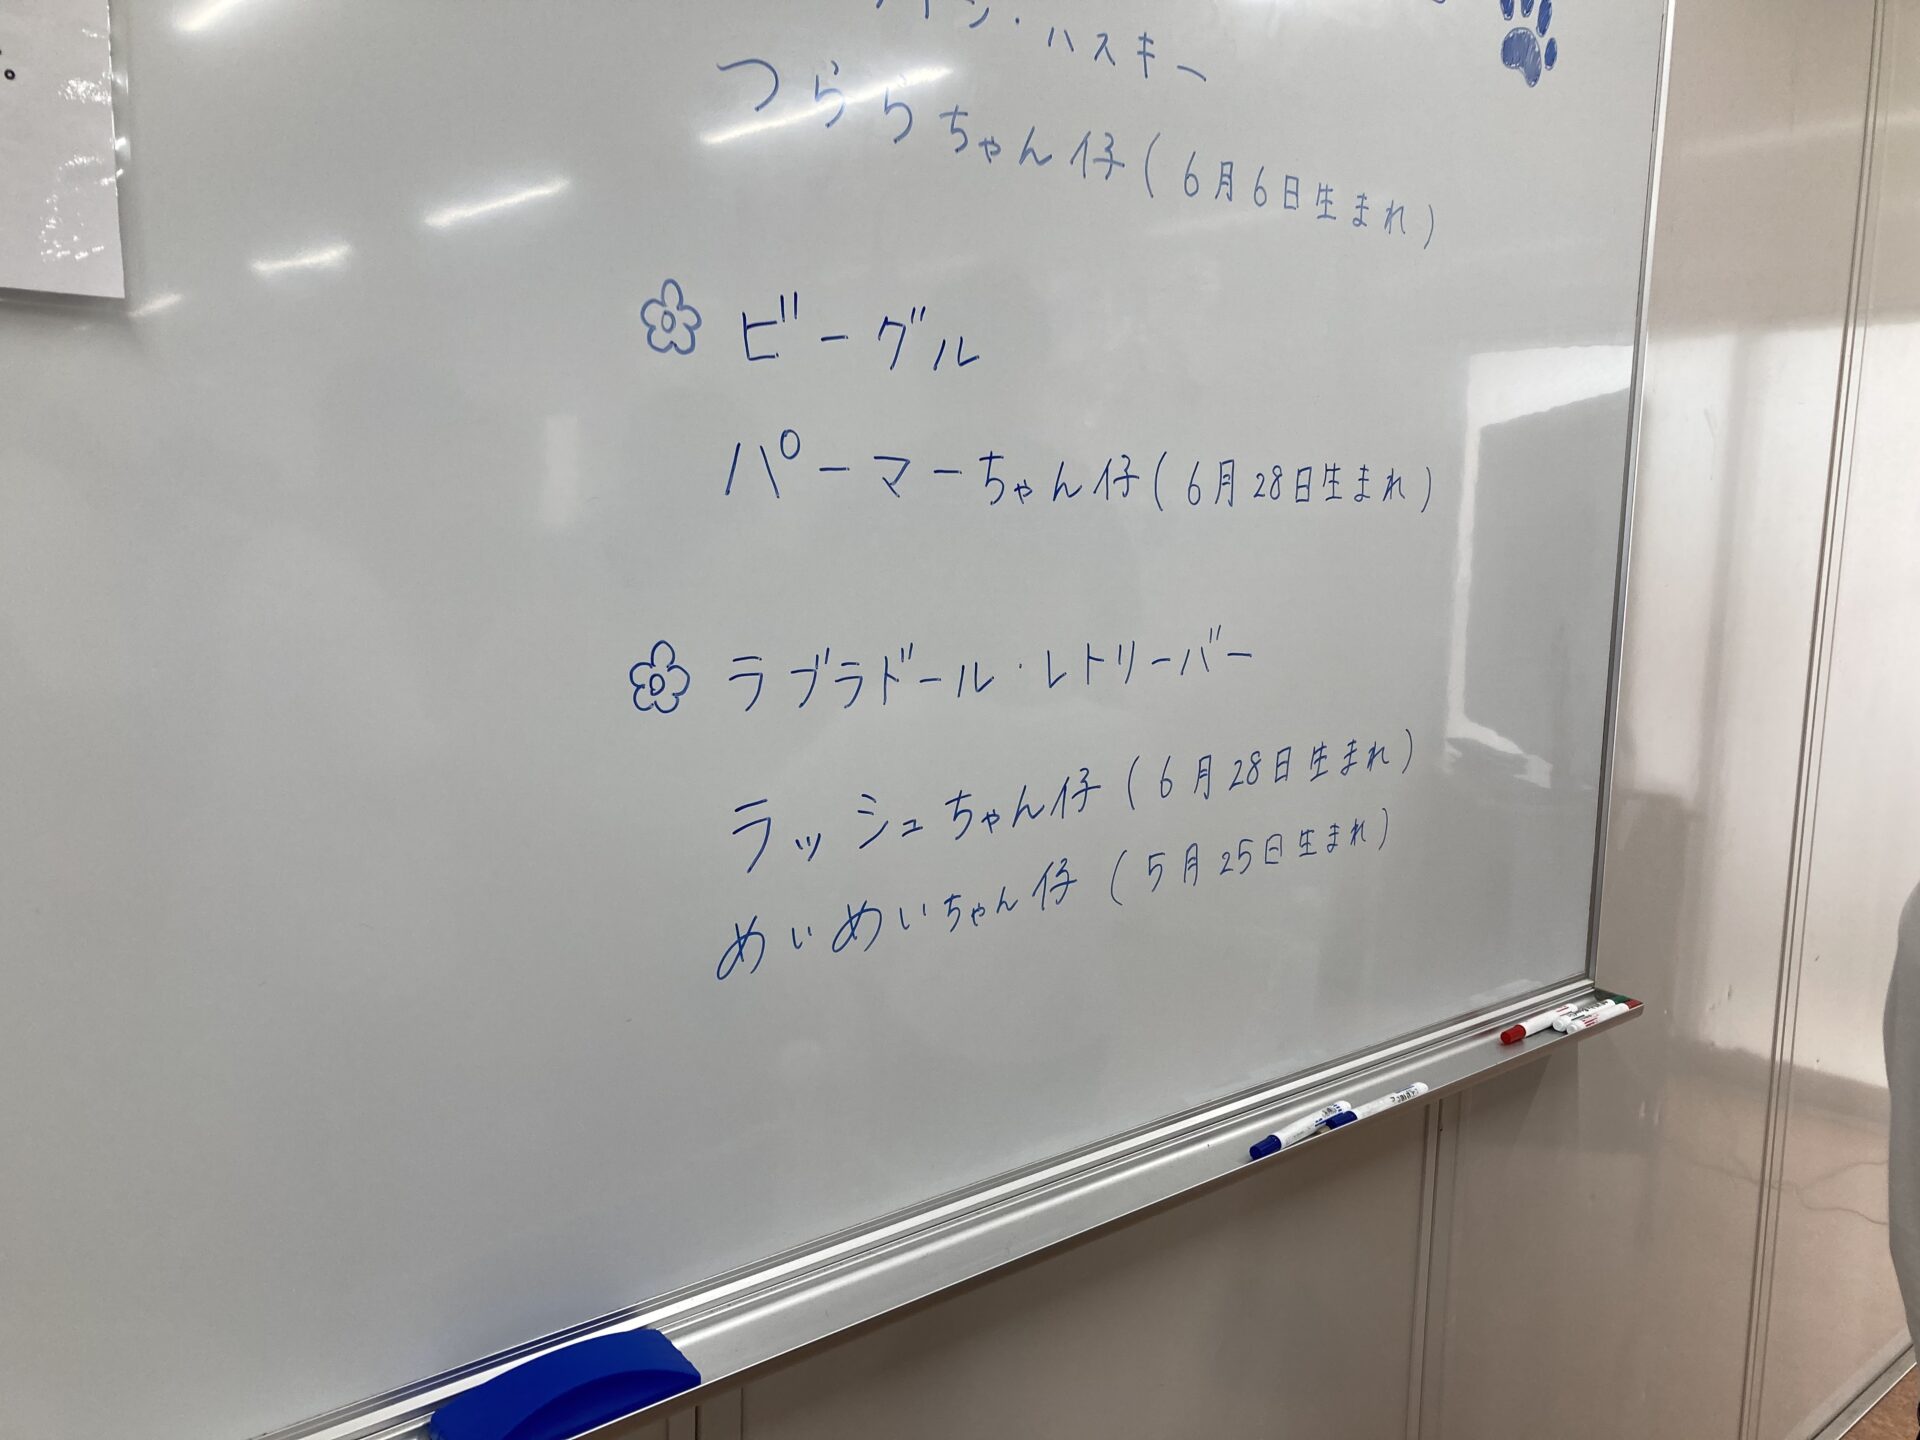 ン・ハスキー
つららちゃん仔(6月6日生まれ)
ビーグル
パーマーちゃん仔(6月28日生まれ)
ラブラドール・レトリーバー
ラッシュちゃん仔(6月28日生まれ)
めいめいちゃん仔(5月25日生まれ)